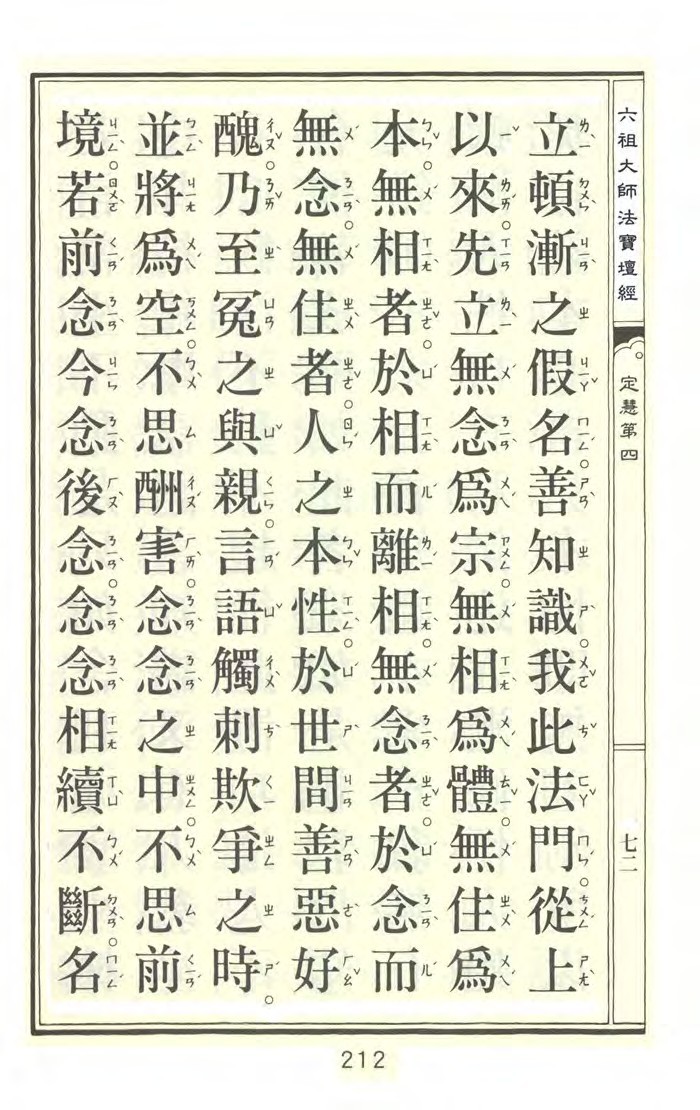 六祖大師法寶壇經 定慧第四 七二
立頓漸之假名。善知識。我此法門。從上
以來。先立無念爲宗。無相爲體。無住爲
本。無相者。於相而離相。無念者。於念而
無念。無住者。人之本性。於世間善惡好
醜。乃至冤之與親。言語觸刺欺爭之時。
並將爲空。不思酬害。念念之中。不思前
境。若前念今念後念。念念相續不斷。名
212